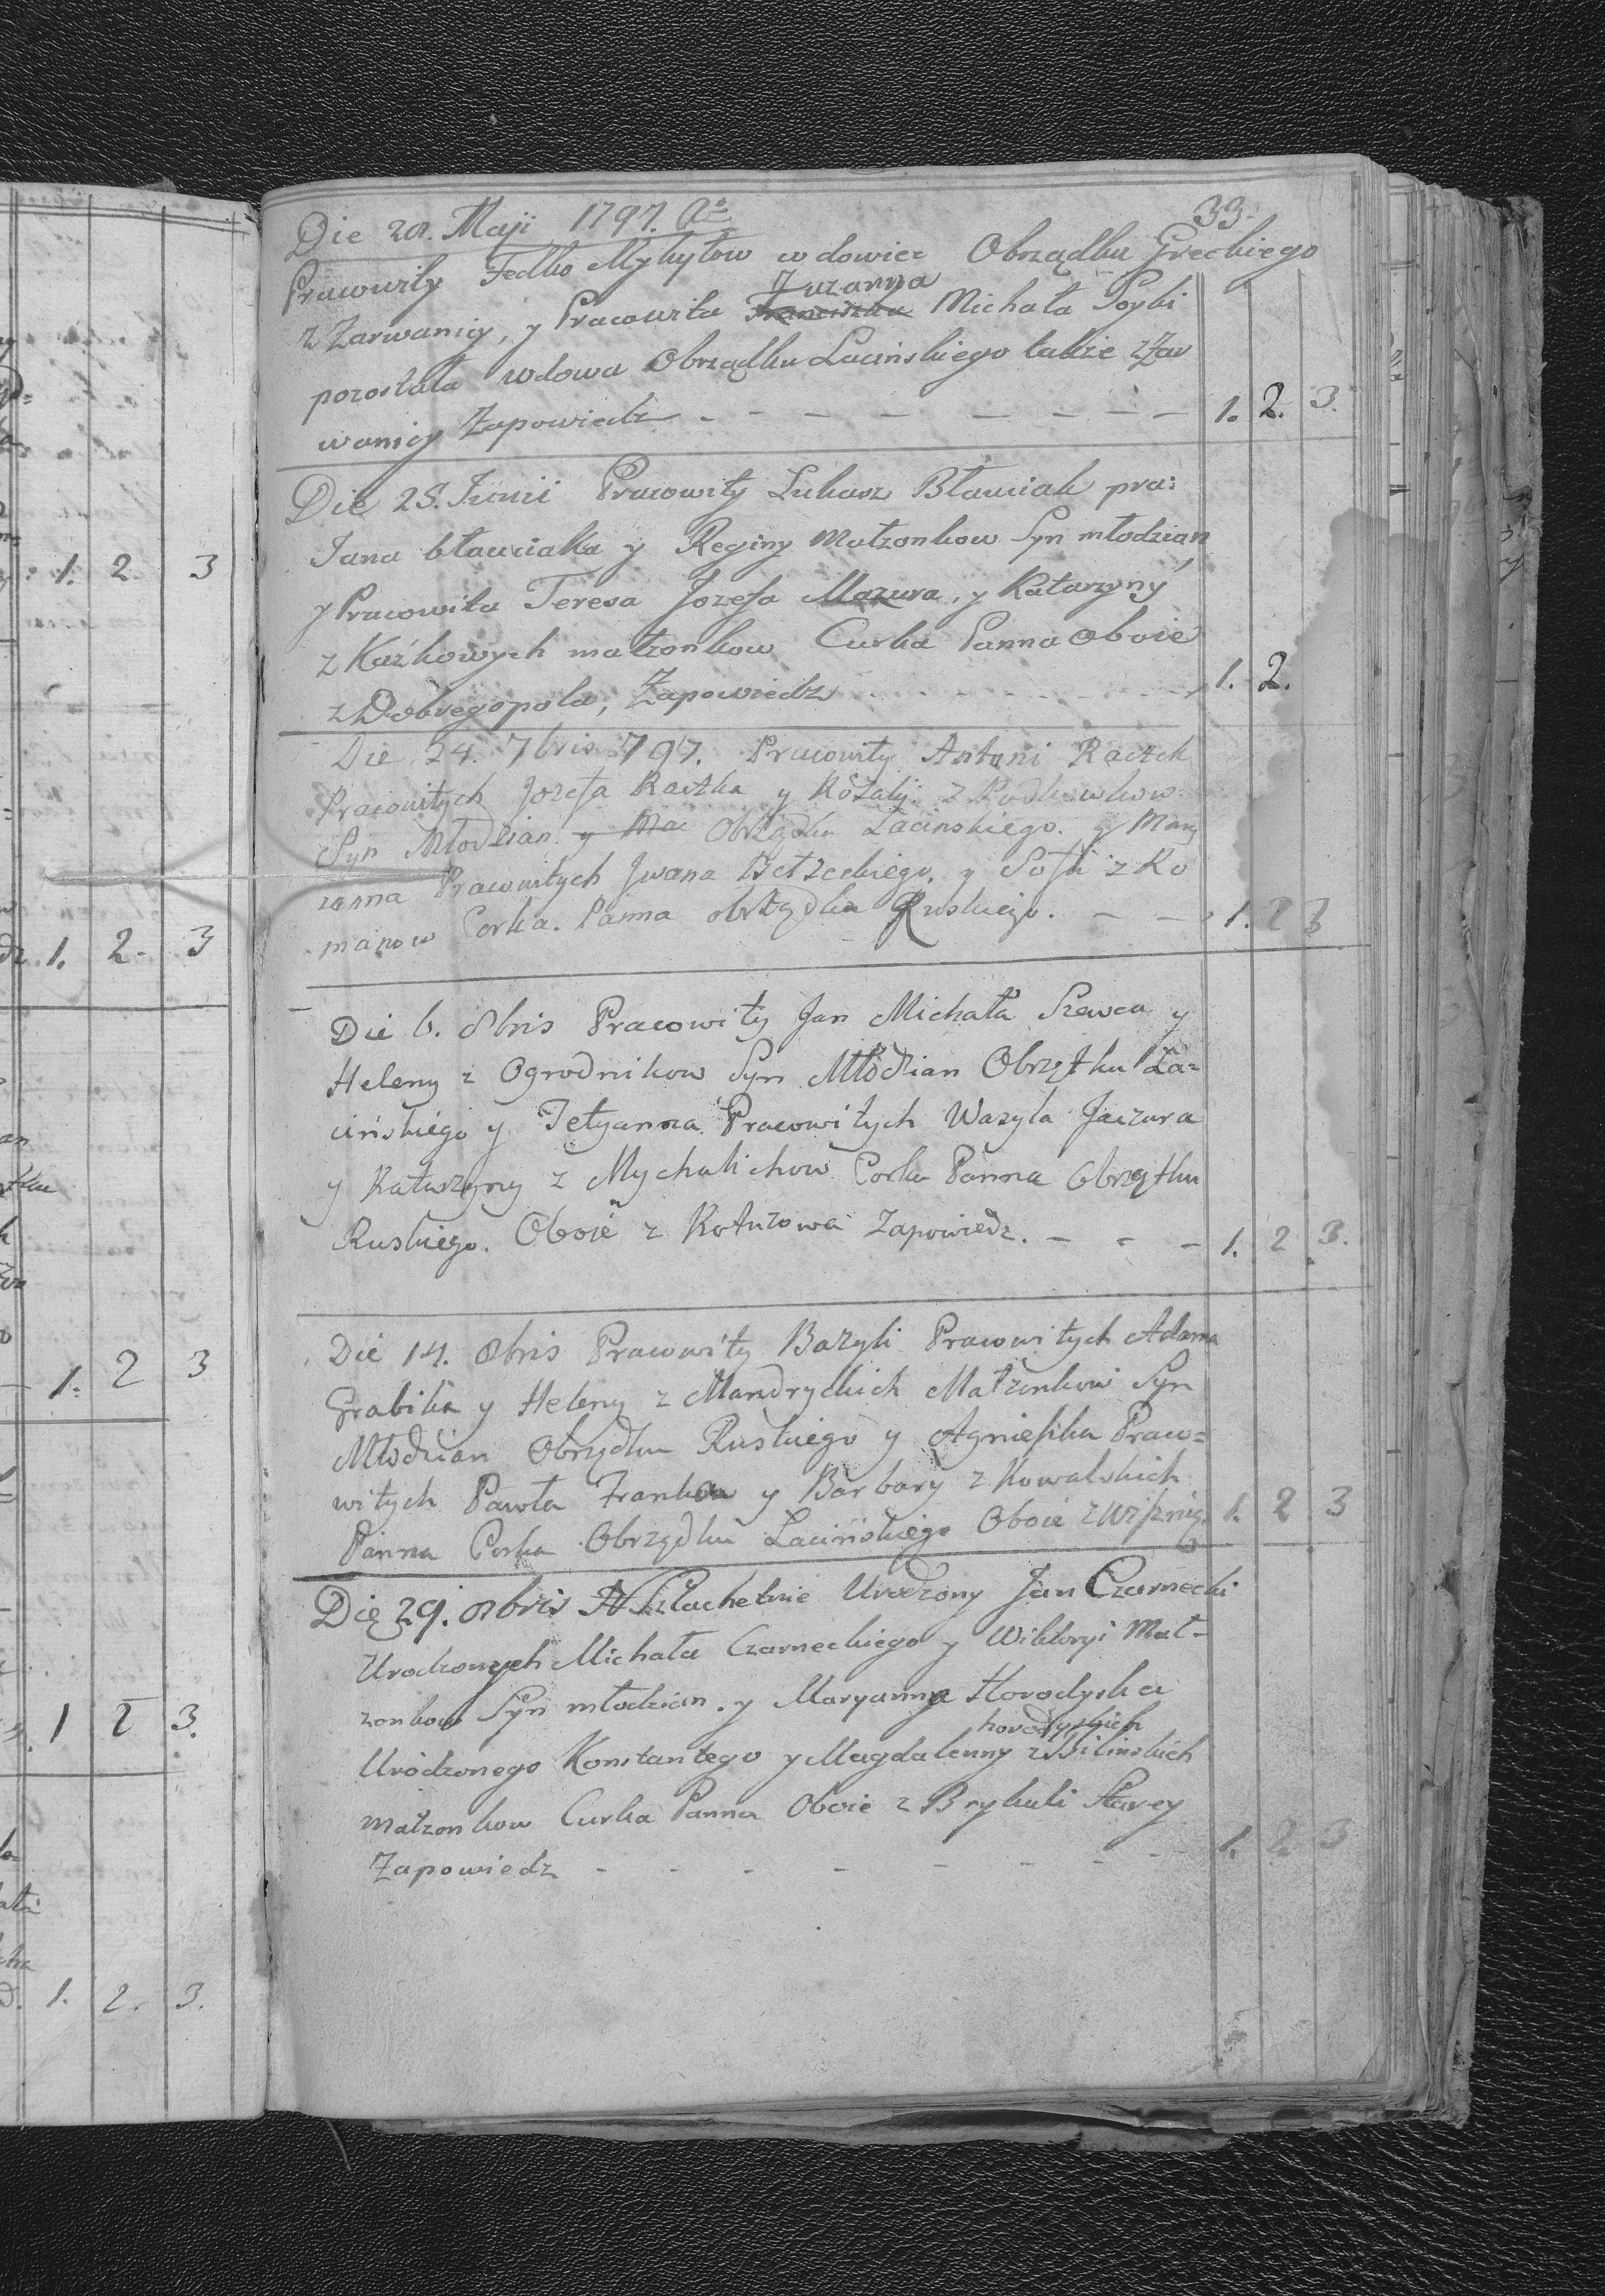 33.
Die 20. Maji 1797. Ao
Pracowity Fedko Mykytow wdowiec Obrządku Greckiego
Zuzanna
z Zarwanicy, y Pracowita Franciszka Michała Poybi
pozostała wdowa Obrządku Lacinskiego także z Zar
wanicy Zapowiedz - - - - - - - - 1. 2. 3.
Die 25. Junii Pracowity Lukasz Błauciak pra:
Jana błauciaka y Reginy Małzonkow Syn młodzian,
y Pracowita Teresa Jozefa Mazura, y Katarzyny
z Kaźkowych małzonkow Curka Panna oboie
z Dobregopola, Zapowiedz - - - - - 1. 2.
Die 24. 7bris 797. Pracowity Antoni Raczek
Pracowitych Jozefa Raczka y Rozalij z
Syn Młodzian y Ma Obrządku Łacinskiego. y Mary
anna Pracowitych Jwana Betzeckiego, y Sofii z Ro
manow Corka. Panna obrządku Ruskiego. - - 1. 2 3
Die 6. 8bris Pracowity Jan Michała Szewca y
Heleny z Ogrodnikow Syn Młodzian Obrzątku Ła=
cińskiego y Tetyanna Pracowitych Wasyla Jaczura
y Katarzyny z Mychalichow Corka Panna Obrzątku
Ruskiego. Oboie z Kotuzowa Zapowiedz. - - - 1. 2 3.
Die 14. 8bris Pracowity Bazyli Pracowitych Adama
Grabika y Heleny z Mandryckich Małzonkow Syn
Młodzian Obrządku Ruskiego y Agnieszka Praco=
witych Pawła Franka y Barbary z Kowalskich
Panna Corka Obrządku Łacińskiego Oboie z 1. 2 3
Die 29. 8bris Szlachetnie Urodzony Jan Czarnecki
Urodzonych Michała Czarneckiego y Wiktoryi Mał-
zonkow Syn młodzian. y Maryanna Horodyska
horodyskich
Urodzonego Konstantego y Magdalenny z Bilinskich
małzonkow Curka Panna Oboie z Brykuli Starey
Zapowiedz - - - - - - - - 1. 2 3
1. 2 3
1. 2- 3
1. 2 3
1 2 3.
1. 2. 3.